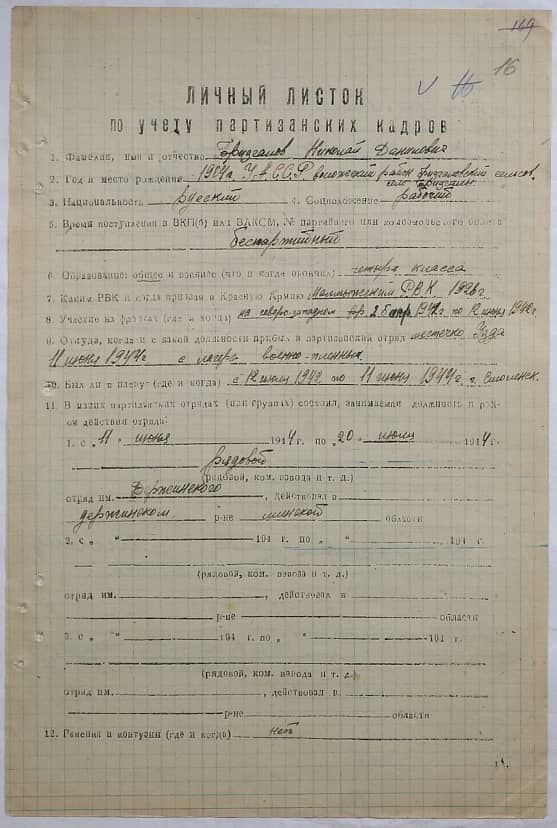 169
16
ЛИЧНЫЙ ЛИСТОК
по учету партизанских кадров
1. Фамилия, имя и отчество Николай Данилович
2. Год и место рождения 1904г. район
3. Национальность русский 4. Соцположение рабочий
5. Время поступления в ВКП(б) или ВЛКСМ, № партийного или комсомольского билета
беспартийный
6. Образование: общее и военное (что и когда окончил) четыре класса
7. Каким РВК и когда призван в Красную Армию РВК 1926 г.
8. Участие на фронтах (где и когда) на северо-западном фр. 1942 г по 12 июля 1942г.
9. Откуда, когда и с какой должности прибыл в партизанский отряд местечко Узда
11 июня 1944г с лагеря военно-пленных
10. Был ли в плену (где и когда) с 12 июля 1942 по 11 июня 1944г. г. Смоленск.
11. В каких партизанских отрядах (или группах) состоял, занимаемая должность и рай-
он действия отряда.
1. с „11“ июня 1944 г. по „20“ июля 1944 г.
рядовой
(рядовой, ком. взвода и т. д.)
отряд им. Держинского, действовал в
держинском р-не минской области
2. с „ “ 194 г. по „ “ 194 г.
(рядовой, ком. взвода и т. д.)
отряд им. , действовал в
р-не области
3. с „ “ 194 г. по „ “ 194 г.
(рядовой, ком. взвода и т. д.)
отряд им. , действовал в
р-не области
12. Ранения и контузии (где и когда) нет